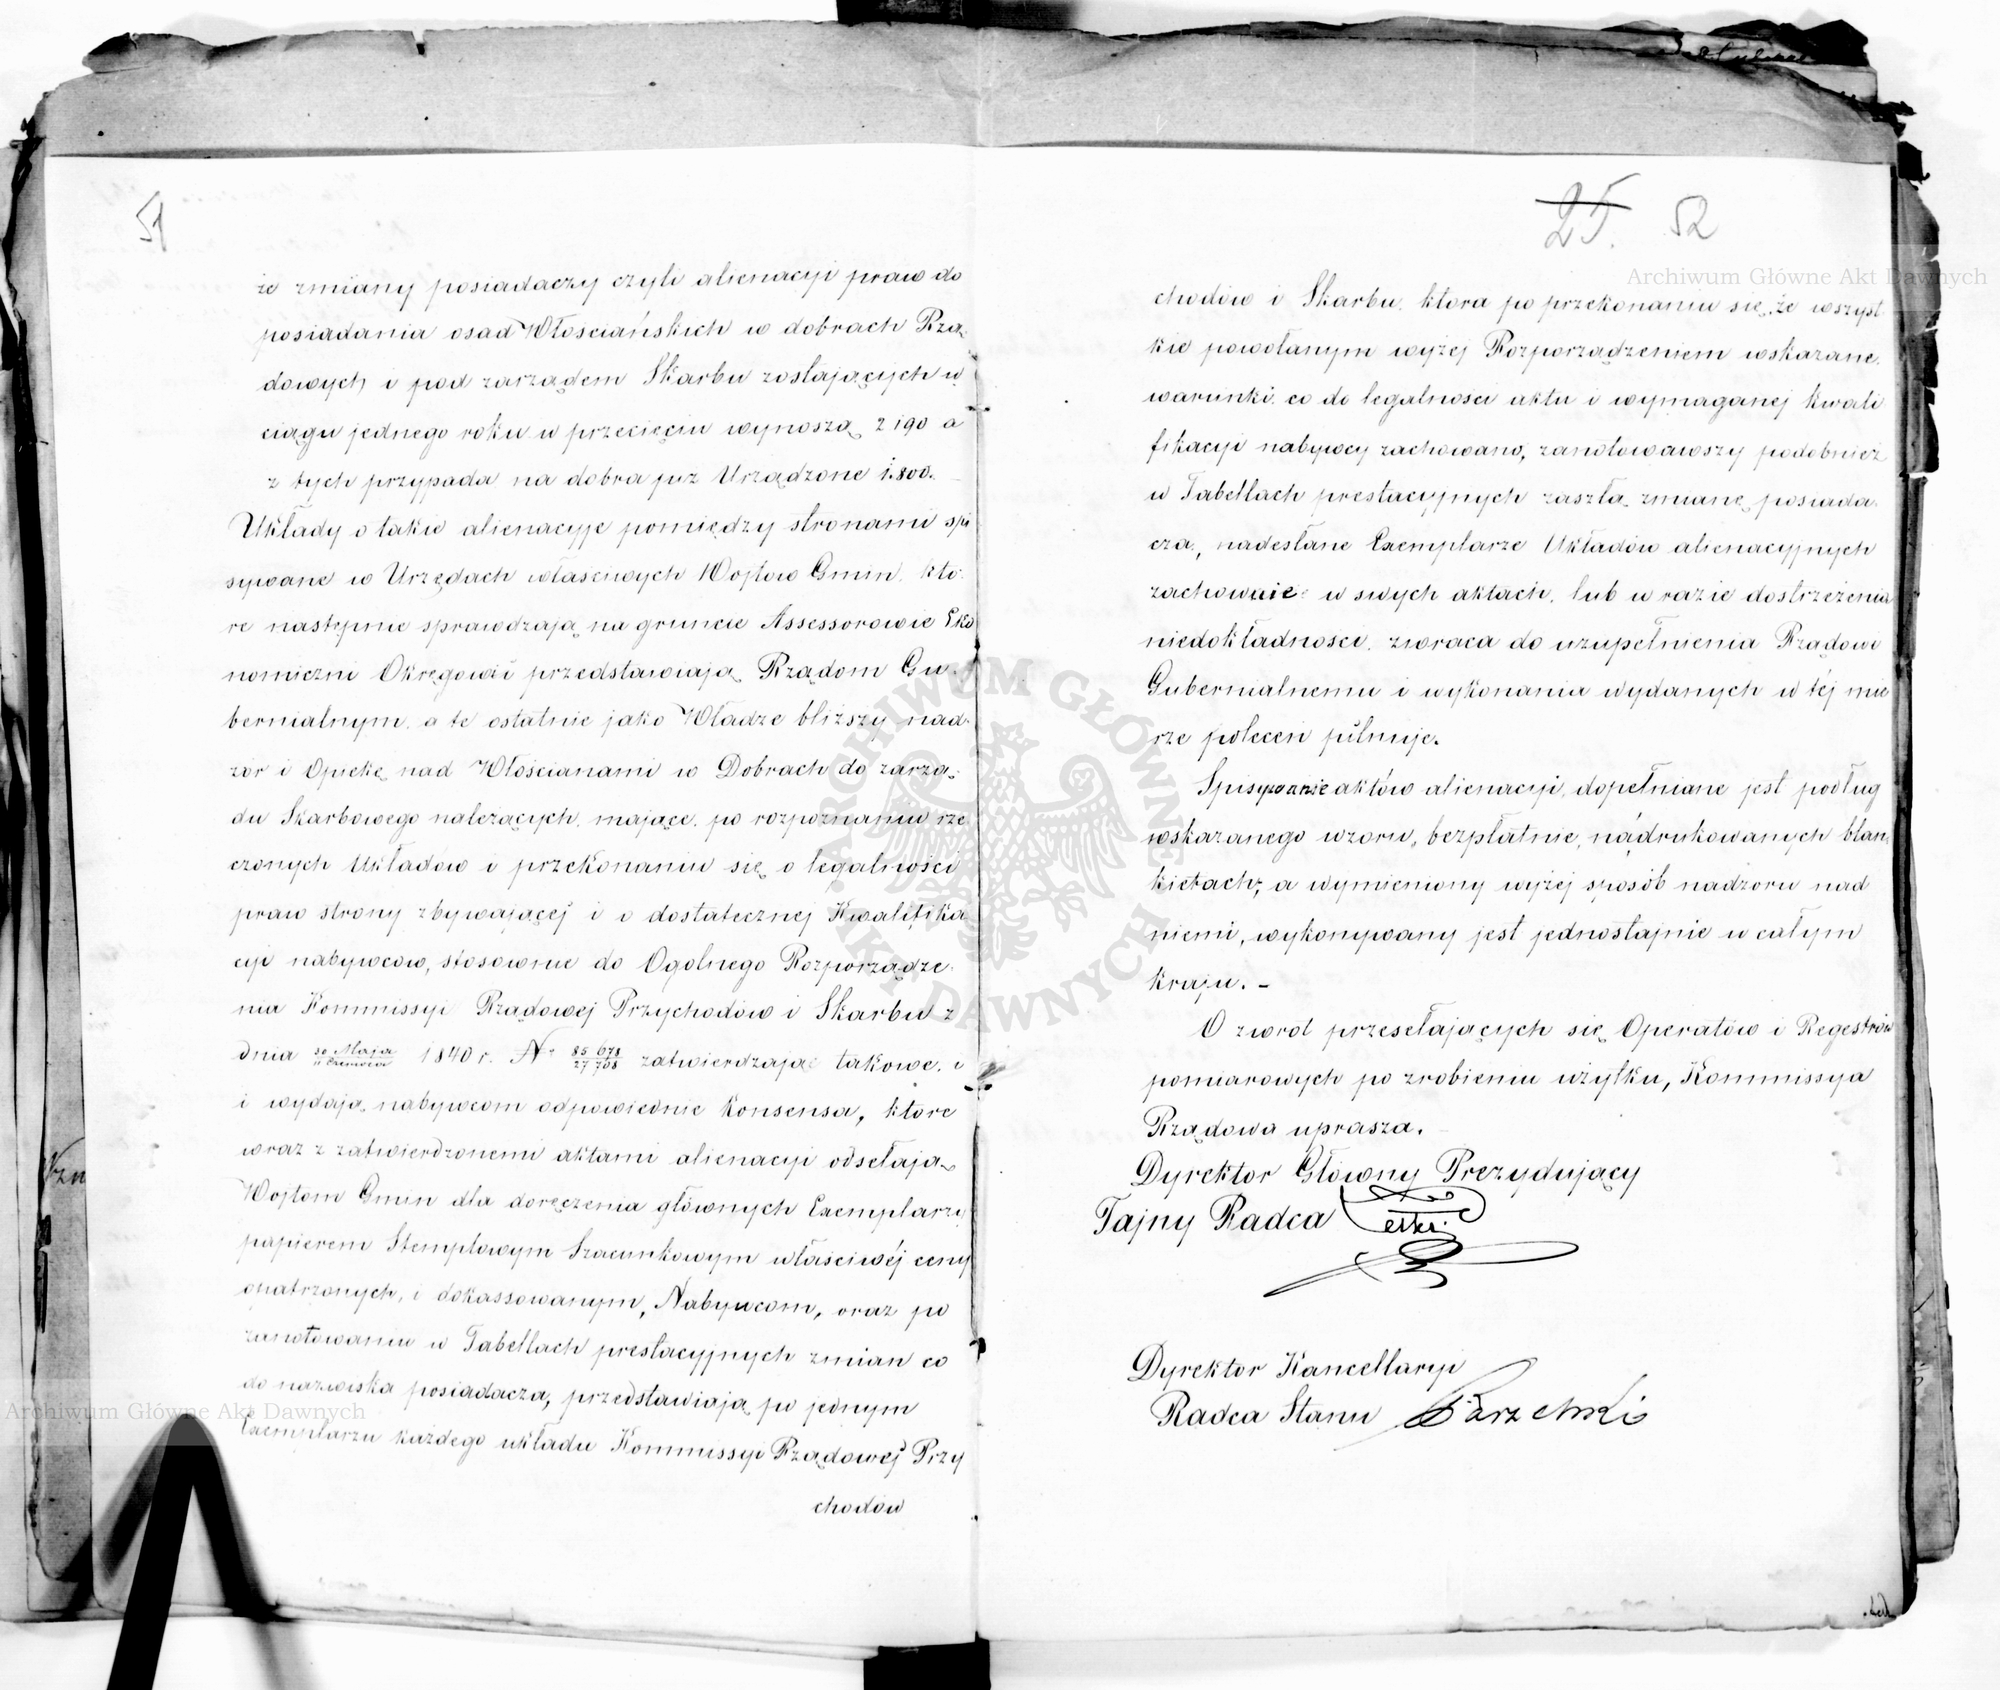 51
że zmiany posiadaczy czyli alienacyi praw do
posiadania osad Włościańskich w dobrach Rzą
dowych i pod zarządem Skarbu zostających w
ciągu jednego roku w przecięciu wynoszą 2190 a
z tych przypada na dobra już Urządzone 1.800.
Układy o takie alienacyje pomiędzy stronami spi
sywane w Urzędach właściwych Wojtow Gmin, któ
re następnie sprawdzają na gruncie Assessorowie Eko
nomiczni Okręgowi i przedstawiają Rządom Gu
bernialnym, a te ostatnie jako Władze bliższy nad
zór i Opiekę nad Włościanami w Dobrach do zarzą
du Skarbowego należących, mające, po rozpoznaniu rze
czonych Układów i przekonaniu się o legalności
praw strony zbywającej i o dostatecznej Kwalifika
cyi nabywcow, stosownie do Ogólnego Rozporządze
nia Kommissyi Rządowej Przychodów i Skarbu z
dnia 30 Maja / 11 Czerwca 1840 r. No 85 678 / 27 708 zatwierdzając takowe, i
i wydają nabywcom odpowiednie Konsensa, które
wraz z zatwierdzonemi aktami alienacyi odsełają
Wojtom Gmin dla doręczenia głównych Exemplarzy
papierem Stemplowym Szacunkowym właściwéj ceny
opatrzonych, i dokassowanym, Nabywcom, oraz po
zanotowaniu w Tabellach prestacyjnych zmian co
do nazwiska posiadacza, przedstawiają po jednym
Exemplarzu każdego układu Kommissyi Rządowej Przy
chodów
25. 52
chodów i Skarbu, która po przekonaniu się, że wszyst
kie powołanym wyżej Rozporządzeniem wskazane
warunki co do legalności aktu i wymaganej kwali
fikacyi nabywcy zachowano, zanotowawszy podobnież
w Tabellach prestacyjnych zaszłą zmianę posiada
cza, nadesłane Exemplarze Układów alienacyjnych
zachowuie w swych aktach, lub w razie dostrzeżenia
niedokładności, zwraca do uzupełnienia Rządowi
Gubernialnemu i wykonania wydanych w téj mie
rze poleceń pilnuje.
Spisywanie aktów alienacyi, dopełniane jest podług
wskazanego wzoru, bezpłatnie, na drukowanych blan
kietach, a wymieniony wyżej sposób nadzoru nad
niemi, wykonywany jest jednostajnie w całym
kraju. -
O zwrot przesełających się Operatów i Regestrów
pomiarowych po zrobieniu użytku, Kommissya
Rządowa uprasza.
Dyrektor Główny Prezydujący
Tajny Radca
Dyrektor Kancellaryi
Radca Stanu
Archiwum Główne Akt Dawnych
Archiwum Główne Akt Dawnych
ARCHIWUM GŁÓWNE AKT DAWNYCH